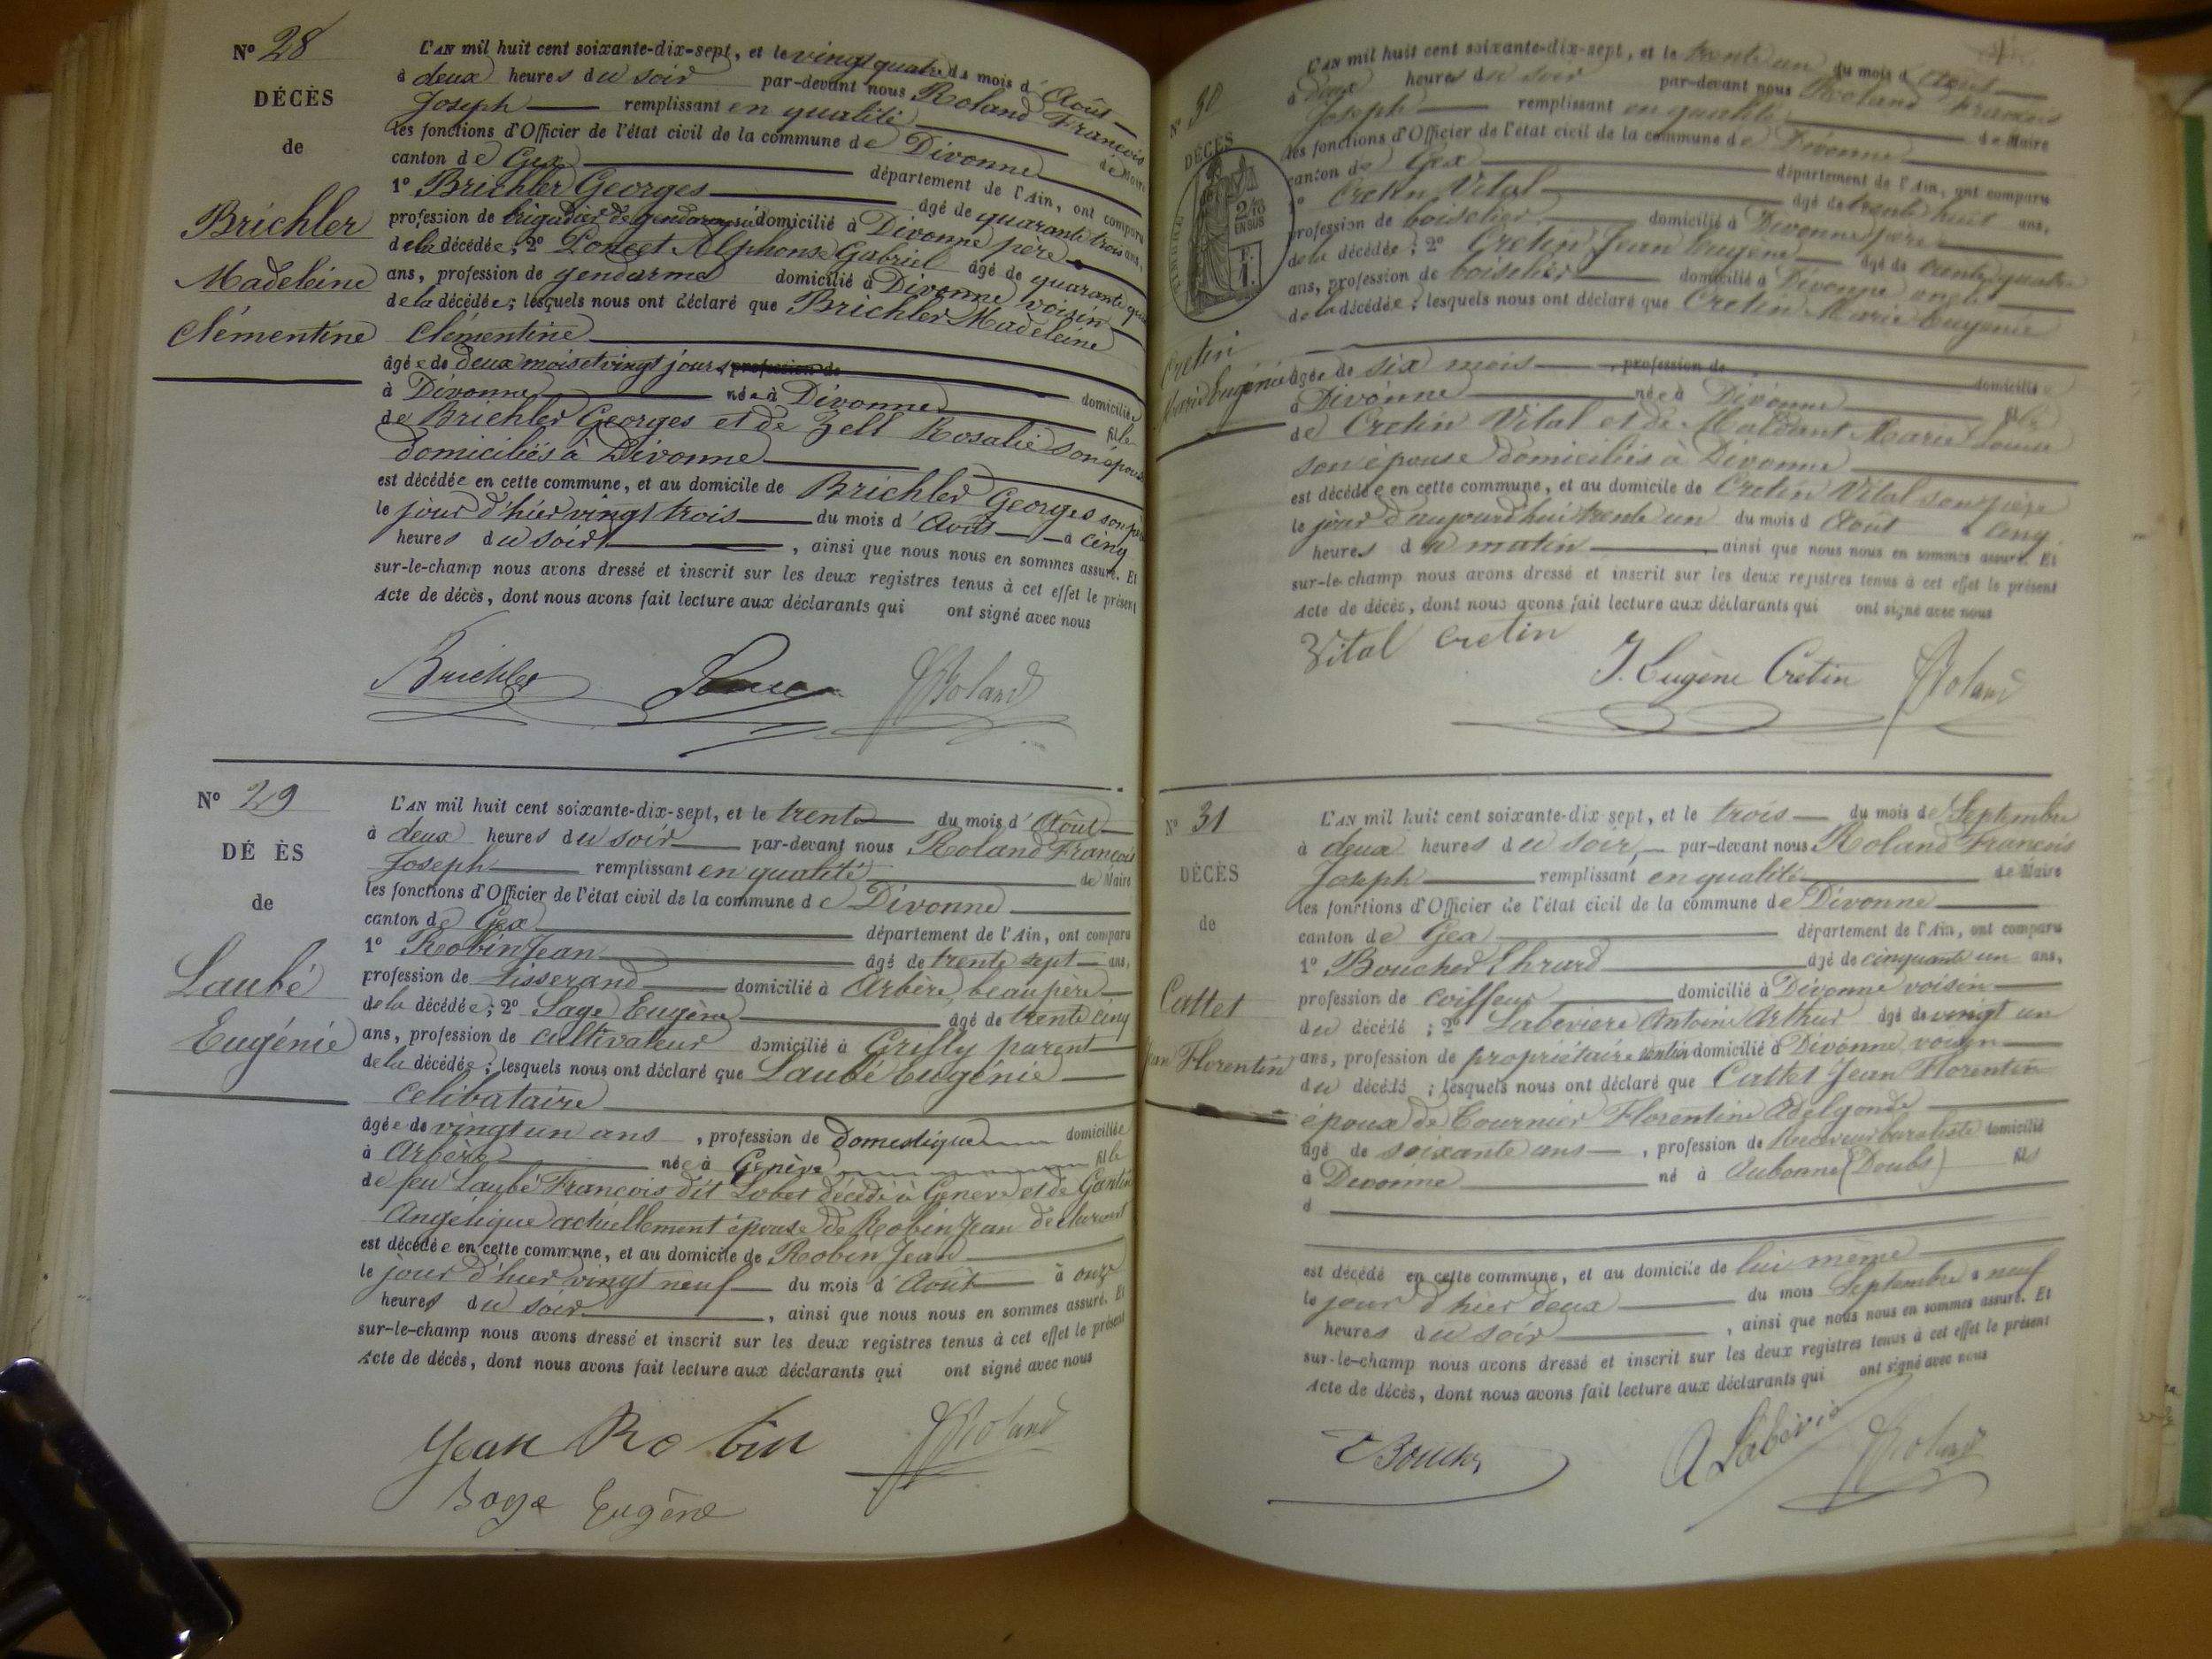 N° 28
DÉCÈS
de
Brichler
Madeleine
Clémentine
L'AN mil huit cent soixante-dix-sept, et le vingt quatre du mois d'Août
à deux heures du soir par-devant nous Roland François
Joseph remplissant en qualité de Maire
les fonctions d'Officier de l'état civil de la commune de Divonne
canton de Gex département de l'Ain, ont comparu
1° Brichler Georges âgé de quarante trois ans,
profession de brigadier de gendarmerie domicilié à Divonne père
de la décédée ; 2° Poncet Alphonse Gabriel âgé de quarante
ans, profession de gendarme domicilié à Divonne voisin
de la décédée ; lesquels nous ont déclaré que Brichler Madeleine
Clémentine
âgée de deux mois et vingt jours, profession de domiciliée
à Divonne née à Divonne fille
de Brichler Georges et de Zell Rosalie son épouse
domiciliés à Divonne
est décédée en cette commune, et au domicile de Brichler Georges son père
le jour d'hier vingt trois du mois d'Août à cinq
heures du soir, ainsi que nous nous en sommes assuré. Et
sur-le-champ nous avons dressé et inscrit sur les deux registres tenus à cet effet le présent
Acte de décès, dont nous avons fait lecture aux déclarants qui ont signé avec nous
Brichler Roland
N° 29
DÉ ÈS
de
Laubé
Eugénie
L'AN mil huit cent soixante-dix-sept, et le trente du mois d'Août
à deux heures du soir par-devant nous Roland François
Joseph remplissant en qualité de Maire
les fonctions d'Officier de l'état civil de la commune de Divonne
canton de Gex département de l'Ain, ont comparu
1° Robin Jean âgé de trente sept ans,
profession de tisserand domicilié à Arbère, beau père
de la décédée ; 2° Sage Eugène âgé de trente cinq
ans, profession de cultivateur domicilié à Grilly parent
de la décédée ; lesquels nous ont déclaré que Laubé Eugénie
célibataire
âgée de vingt un ans, profession de domestique domiciliée
à Arbère née à Genève fille
de feu Laubé François dit Lobet décédé à Genève et de Gantin
Angélique actuellement épouse de Robin Jean déclarant
est décédée en cette commune, et au domicile de Robin Jean
le jour d'hier vingt neuf du mois d'Août à onze
heures du soir, ainsi que nous nous en sommes assuré. Et
sur-le-champ nous avons dressé et inscrit sur les deux registres tenus à cet effet le présent
Acte de décès, dont nous avons fait lecture aux déclarants qui ont signé avec nous
Jean Robin Roland
Sage Eugène
N° 30
DÉCÈS
de
2/10
EN SUS
Cretin
Marie Eugénie
L'AN mil huit cent soixante-dix-sept, et le trente un du mois d'Août
à deux heures du soir par-devant nous Roland François
Joseph remplissant en qualité de Maire
les fonctions d'Officier de l'état civil de la commune de Divonne
canton de Gex département de l'Ain, ont comparu
1° Cretin Vital âgé de trente huit ans,
profession de boisselier domicilié à Divonne père
de la décédée ; 2° Cretin Jean Eugène âgé de trente quatre
ans, profession de boisselier domicilié à Divonne oncle
de la décédée ; lesquels nous ont déclaré que Cretin Marie Eugénie
âgée de six mois, profession de domiciliée
à Divonne née à Divonne fille
de Cretin Vital et de Marie Louise
son épouse domiciliés à Divonne
est décédée en cette commune, et au domicile de Cretin Vital son père
le jour d'aujourd'hui trente un du mois d Août à cinq
heures du matin, ainsi que nous nous en sommes assuré. Et
sur-le-champ nous avons dressé et inscrit sur les deux registres tenus à cet effet le présent
Acte de décès, dont nous avons fait lecture aux déclarants qui ont signé avec nous
Vital Cretin
J. Eugène Cretin Roland
N° 31
DÉCÈS
de
Cattet
Jean Florentin
L'AN mil huit cent soixante-dix sept, et le trois du mois de Septembre
à deux heures du soir, par-devant nous Roland François
Joseph remplissant en qualité de Maire
les fonctions d'Officier de l'état civil de la commune de Divonne
canton de Gex département de l'Ain, ont comparu
1° Boucher Ehrard âgé de cinquante un ans,
profession de coiffeur domicilié à Divonne voisin
du décédé ; 2° Labevière Antoine Arthur âgé de vingt un
ans, profession de propriétaire rentier domicilié à Divonne voisin
du décédé ; lesquels nous ont déclaré que Cattet Jean Florentin
époux de Tournier Florentine Adelgonde
âgé de soixante ans, profession de Receveur buraliste domicilié
à Divonne né à Aubonne (Doubs) fils
d
est décédé en cette commune, et au domicile de lui même
le jour d'hier deux du mois Septembre à neuf
heures du soir, ainsi que nous nous en sommes assuré. Et
sur-le-champ nous avons dressé et inscrit sur les deux registres tenus à cet effet le présent
Acte de décès, dont nous avons fait lecture aux déclarants qui ont signé avec nous
E Boucher A Labevière Roland